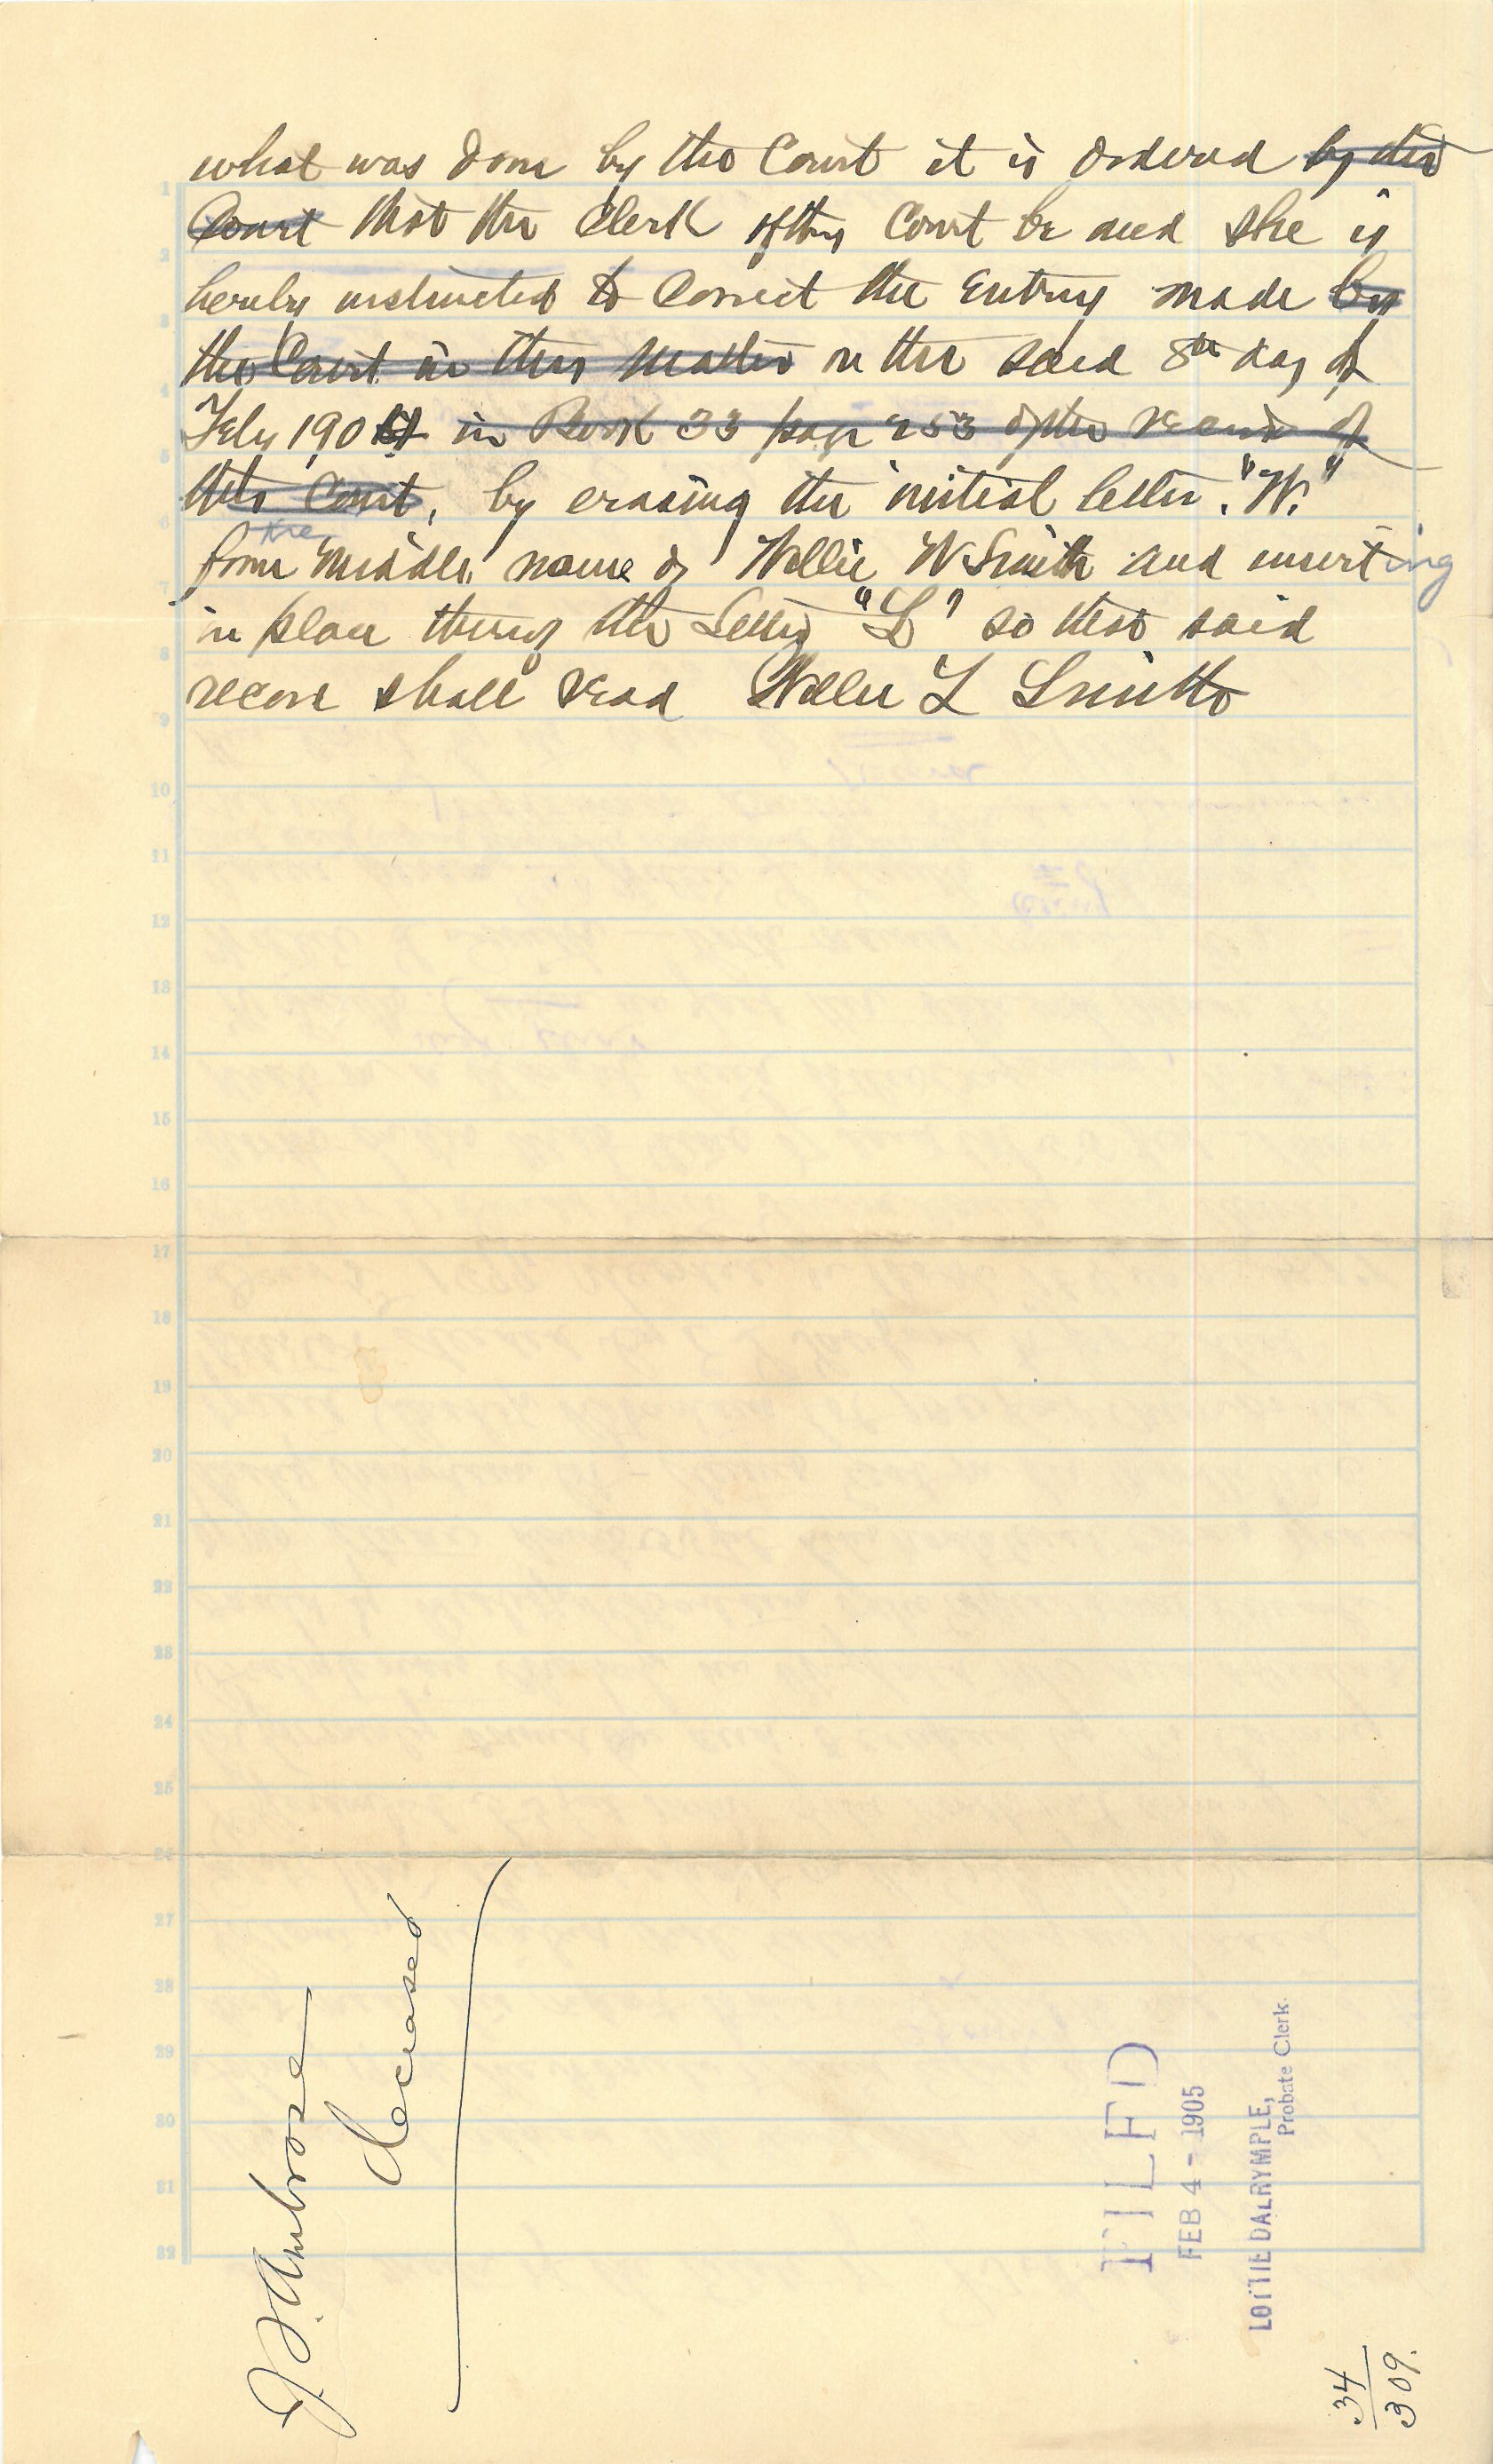 what was done by the Court it is ordered by the
Court that the Clerk of this Court be and she is
hereby instructed to Correct the Entry made by
the Court in this matter on the said 8th day of
Feby 190 in Book 33 page 253 of the record of
this Court, by erasing the initial letter "W."
the
from middle name of Willie W Smith and inserting
in place thereof the Letter "L" so that said
record shall read Willie L Smith
J S Ambrose
deceased
FILED
FEB 4 - 1905
LOTTIE DALRYMPLE,
Probate Clerk.
34
309.
1
2
3
4
5
6
7
8
9
10
11
12
13
14
15
16
17
18
19
20
21
22
23
24
25
26
27
28
29
30
31
32